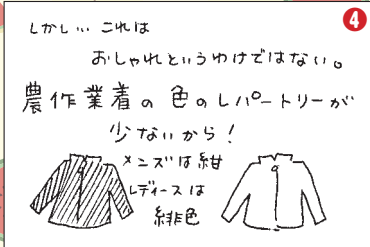 4
しかし… これは
おしゃれというわけではない。
農作業着の色のレパートリーが
少ないから！
メンズは紺
レディースは
緋色